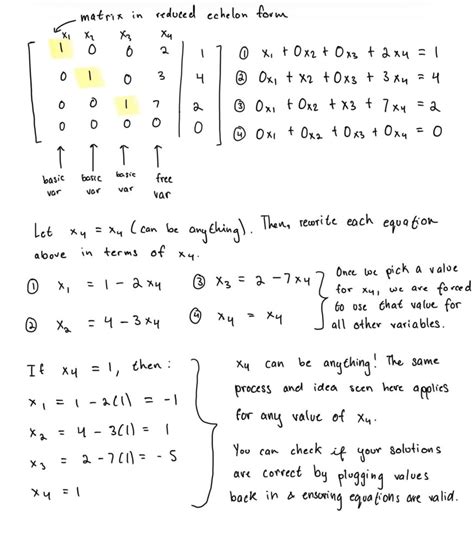 matrix in reduced echelon form
x₁ x₂ x₃ x₄
1 0 0 2 | 1
0 1 0 3 | 4
0 0 1 7 | 2
0 0 0 0 | 0
basic var
basic var
basic var
free var
① x₁ + 0x₂ + 0x₃ + 2x₄ = 1
② 0x₁ + x₂ + 0x₃ + 3x₄ = 4
③ 0x₁ + 0x₂ + x₃ + 7x₄ = 2
④ 0x₁ + 0x₂ + 0x₃ + 0x₄ = 0
Let x₄ = x₄ (can be anything). Then, rewrite each equation
above in terms of x₄.
① x₁ = 1 - 2x₄
② x₂ = 4 - 3x₄
③ x₃ = 2 - 7x₄
④ x₄ = x₄
Once we pick a value
for x₄, we are forced
to use that value for
all other variables.
If x₄ = 1, then:
x₁ = 1 - 2(1) = -1
x₂ = 4 - 3(1) = 1
x₃ = 2 - 7(1) = -5
x₄ = 1
x₄ can be anything! The same
process and idea seen here applies
for any value of x₄.
You can check if your solutions
are correct by plugging values
back in & ensuring equations are valid.